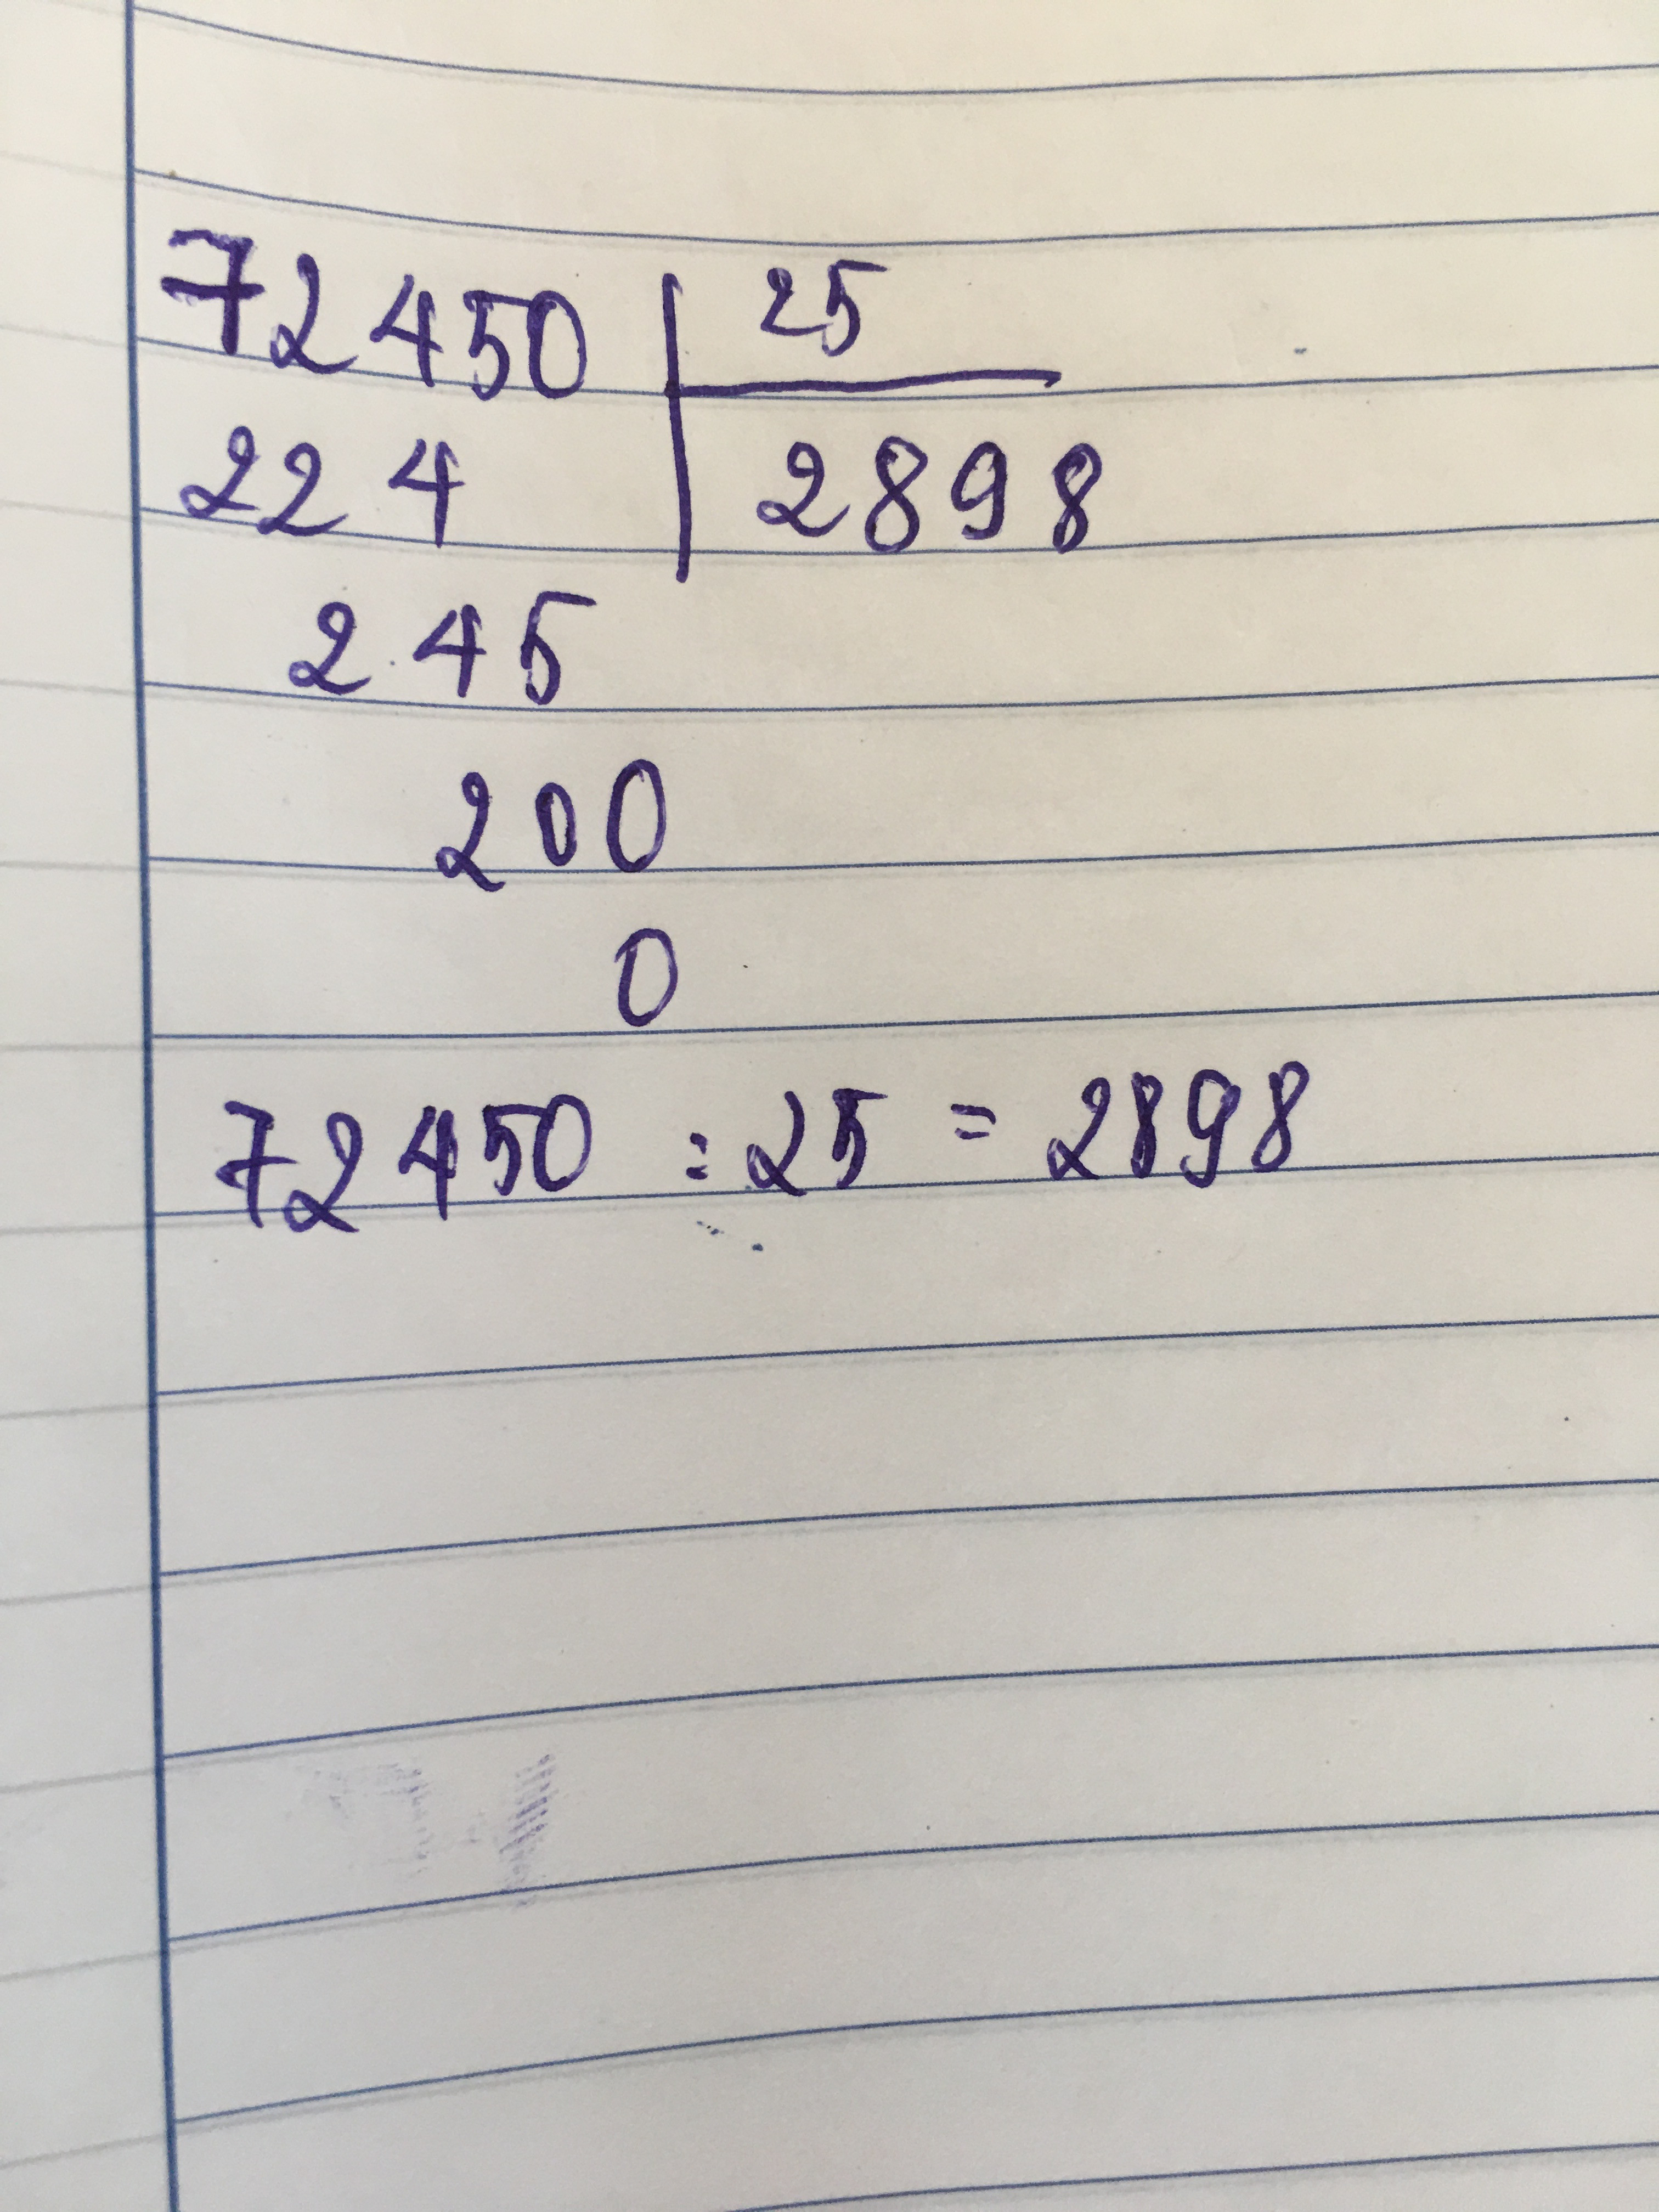 72450 | 25
224 | 2898
245
200
0
72450 : 25 = 2898